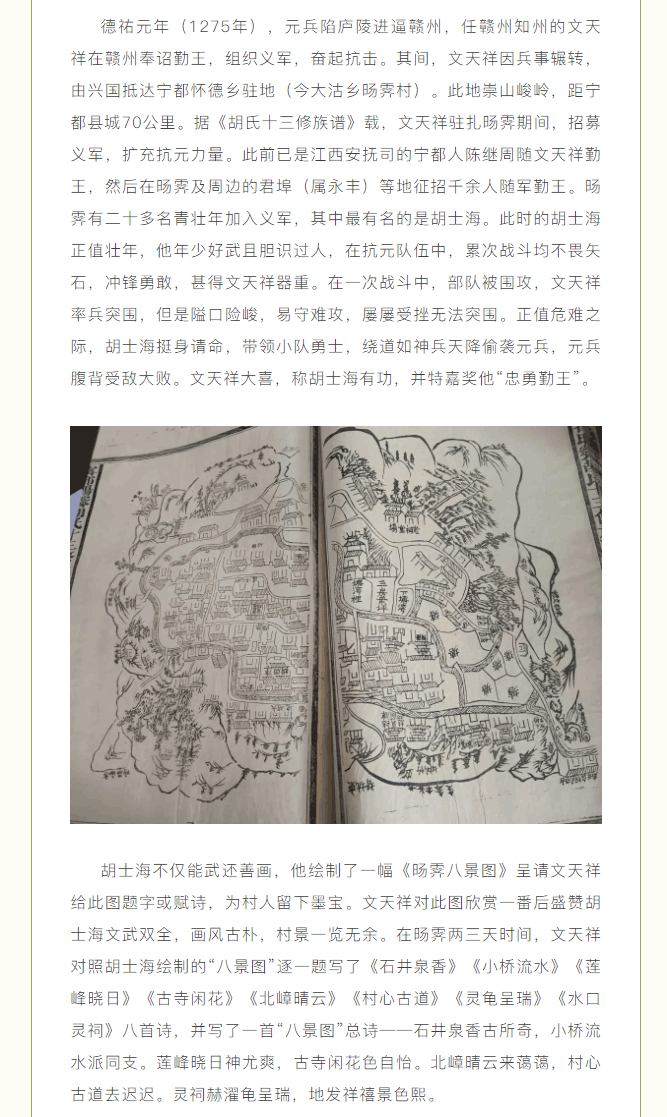 德祐元年（1275年），元兵陷庐陵进逼赣州，任赣州知州的文天
祥在赣州奉诏勤王，组织义军，奋起抗击。其间，文天祥因兵事辗转，
由兴国抵达宁都怀德乡驻地（今大沽乡旸霁村）。此地崇山峻岭，距宁
都县城70公里。据《胡氏十三修族谱》载，文天祥驻扎旸霁期间，招募
义军，扩充抗元力量。此前已是江西安抚司的宁都人陈继周随文天祥勤
王，然后在旸霁及周边的君埠（属永丰）等地征招千余人随军勤王。旸
霁有二十多名青壮年加入义军，其中最有名的是胡士海。此时的胡士海
正值壮年，他年少好武且胆识过人，在抗元队伍中，累次战斗均不畏矢
石，冲锋勇敢，甚得文天祥器重。在一次战斗中，部队被围攻，文天祥
率兵突围，但是隘口险峻，易守难攻，屡屡受挫无法突围。正值危难之
际，胡士海挺身请命，带领小队勇士，绕道如神兵天降偷袭元兵，元兵
腹背受敌大败。文天祥大喜，称胡士海有功，并特嘉奖他“忠勇勤王”。
胡士海不仅能武还善画，他绘制了一幅《旸霁八景图》呈请文天祥
给此图题字或赋诗，为村人留下墨宝。文天祥对此图欣赏一番后盛赞胡
士海文武双全，画风古朴，村景一览无余。在旸霁两三天时间，文天祥
对照胡士海绘制的“八景图”逐一题写了《石井泉香》《小桥流水》《莲
峰晓日》《古寺闲花》《北嶂晴云》《村心古道》《灵龟呈瑞》《水口
灵祠》八首诗，并写了一首“八景图”总诗——石井泉香古所奇，小桥流
水派同支。莲峰晓日神尤爽，古寺闲花色自怡。北嶂晴云来蔼蔼，村心
古道去迟迟。灵祠赫濯龟呈瑞，地发祥禧景色熙。